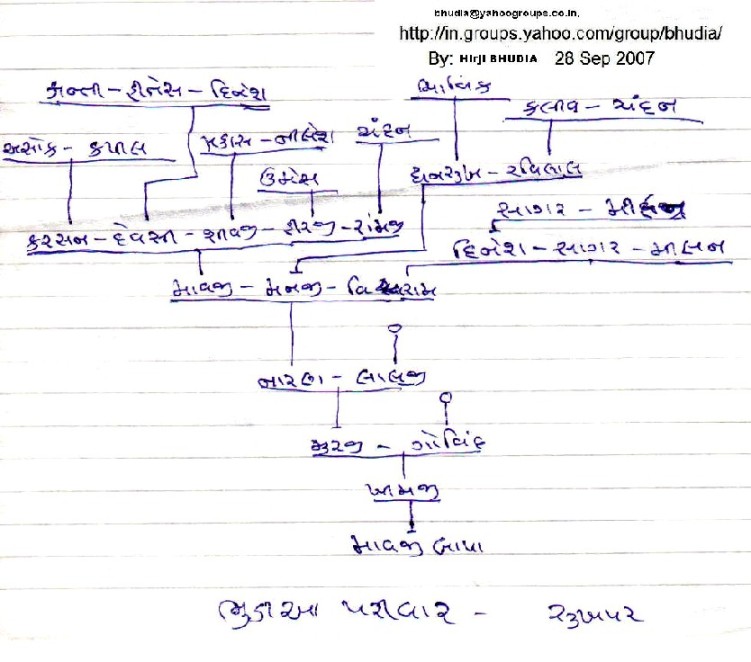 bhudia@yahoogroups.co.in,
http://in.groups.yahoo.com/group/bhudia/
By: HIRJI BHUDIA 28 Sep 2007
કાન્તી - દીનેસ - દિનેશ
ભાવિક
કલાવ - ચંદન
અસોક - કપાલ
પ્રકાસ - નીલેશ
ચંદન
ઉમેશ
ધનસુખ - રવિલાલ
સાગર -
કરસન - દેવસી - શીવજી - હીરજી - રામજી
દિનેશ - સાગર - માલન
માવજી - મનજી - વિશરામ
નારણ - લાલજી
મુરજી - ગોવિંદ
ખીમજી
માવજી બાપા
ભુડીઆ પરીવાર - સુખપર